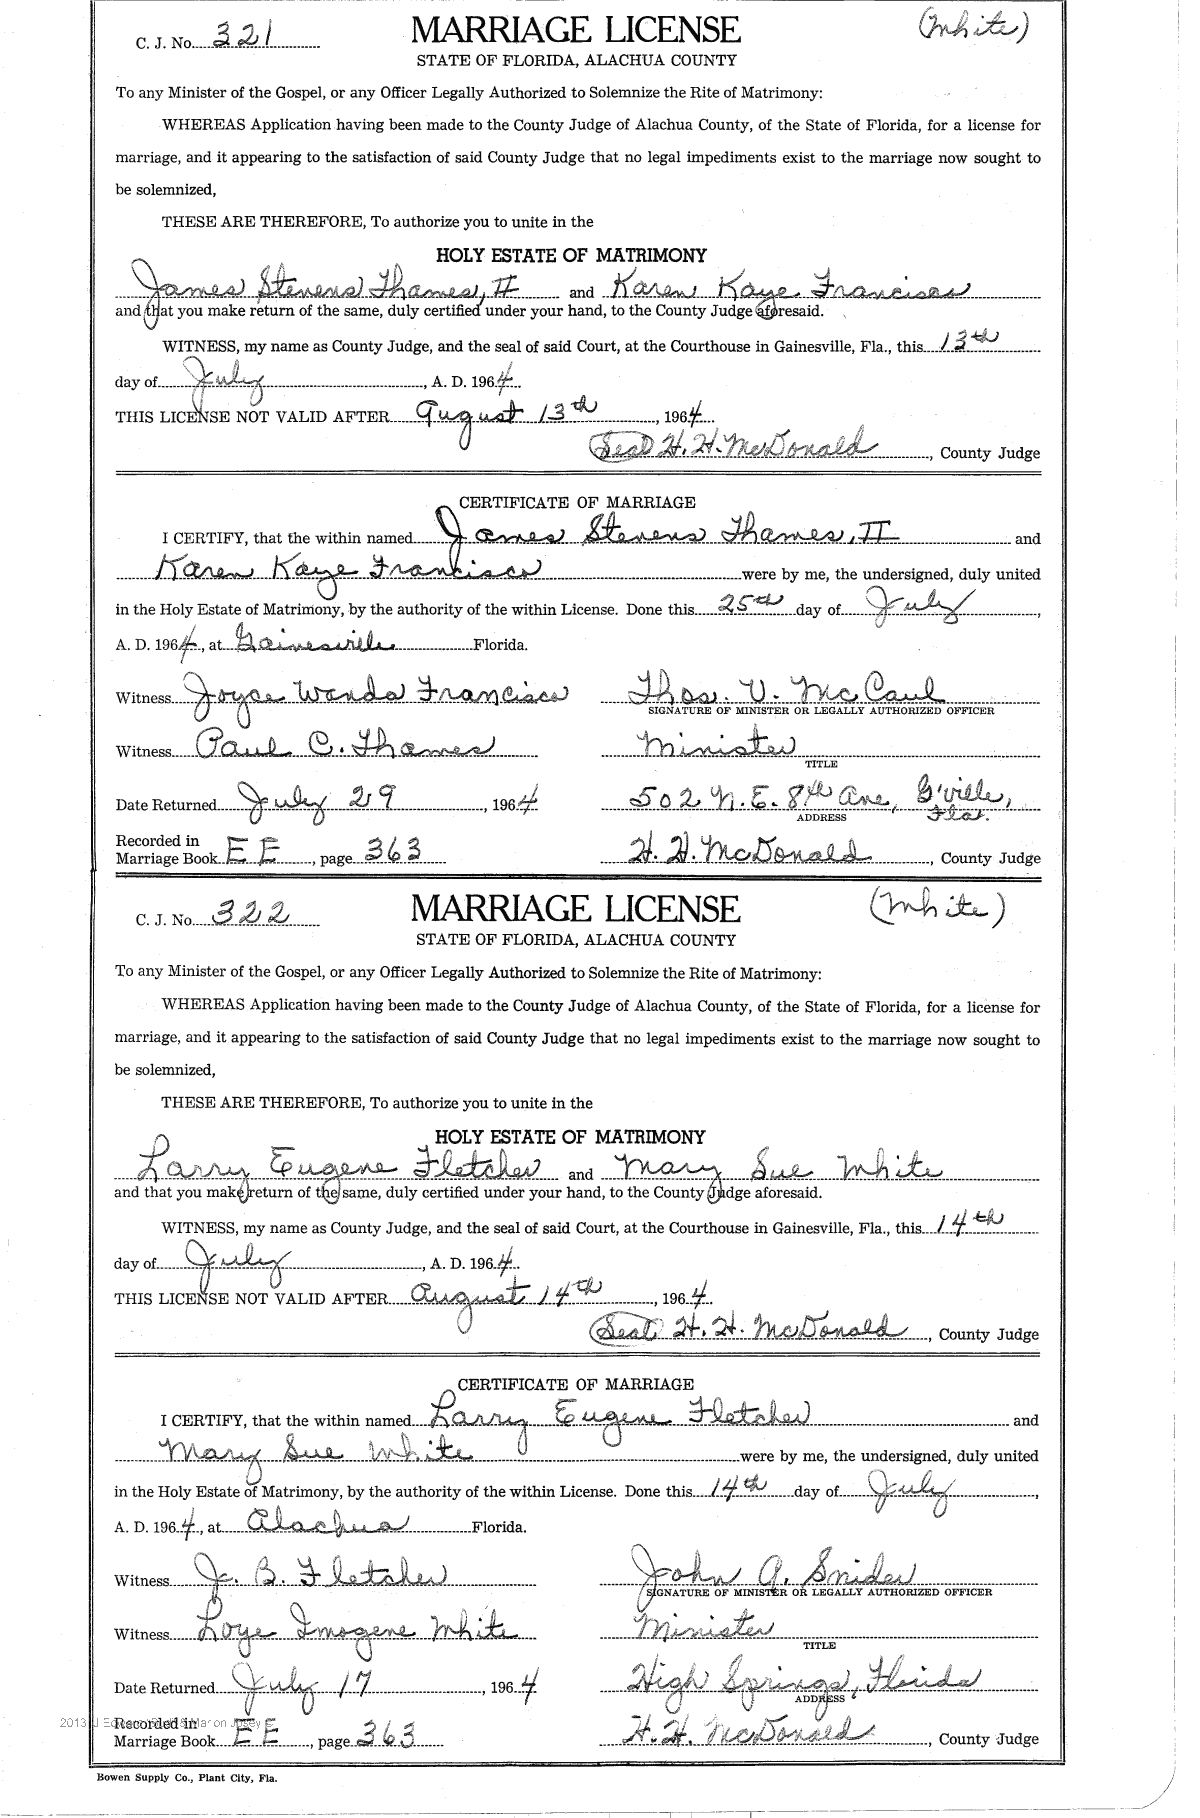 C. J. No. 321 MARRIAGE LICENSE (White)
STATE OF FLORIDA, ALACHUA COUNTY
To any Minister of the Gospel, or any Officer Legally Authorized to Solemnize the Rite of Matrimony:
WHEREAS Application having been made to the County Judge of Alachua County, of the State of Florida, for a license for
marriage, and it appearing to the satisfaction of said County Judge that no legal impediments exist to the marriage now sought to
be solemnized,
THESE ARE THEREFORE, To authorize you to unite in the
HOLY ESTATE OF MATRIMONY
James Stevens Thames, II and Karen Kaye Francisco
and that you make return of the same, duly certified under your hand, to the County Judge aforesaid.
WITNESS, my name as County Judge, and the seal of said Court, at the Courthouse in Gainesville, Fla., this 13th
day of July, A. D. 1964.
THIS LICENSE NOT VALID AFTER August 13th, 1964
(Seal) H. H. McDonald, County Judge
CERTIFICATE OF MARRIAGE
I CERTIFY, that the within named James Stevens Thames, II and
Karen Kaye Francisco were by me, the undersigned, duly united
in the Holy Estate of Matrimony, by the authority of the within License. Done this 25th day of July,
A. D. 1964, at Gainesville Florida.
Witness Joyce Wanda Francisco Thos. V. McCaul
SIGNATURE OF MINISTER OR LEGALLY AUTHORIZED OFFICER
Witness Paul C. Thames Minister
TITLE
Date Returned July 29, 1964 502 N. E. 8th Ave, G'ville,
ADDRESS Fla.
Recorded in
Marriage Book EE, page 363 H. H. McDonald, County Judge
C. J. No. 322 MARRIAGE LICENSE (White)
STATE OF FLORIDA, ALACHUA COUNTY
To any Minister of the Gospel, or any Officer Legally Authorized to Solemnize the Rite of Matrimony:
WHEREAS Application having been made to the County Judge of Alachua County, of the State of Florida, for a license for
marriage, and it appearing to the satisfaction of said County Judge that no legal impediments exist to the marriage now sought to
be solemnized,
THESE ARE THEREFORE, To authorize you to unite in the
HOLY ESTATE OF MATRIMONY
Larry Eugene Fletcher and Mary Sue White
and that you make return of the same, duly certified under your hand, to the County Judge aforesaid.
WITNESS, my name as County Judge, and the seal of said Court, at the Courthouse in Gainesville, Fla., this 14th
day of July, A. D. 1964.
THIS LICENSE NOT VALID AFTER August 14th, 1964.
(Seal) H. H. McDonald, County Judge
CERTIFICATE OF MARRIAGE
I CERTIFY, that the within named Larry Eugene Fletcher and
Mary Sue White were by me, the undersigned, duly united
in the Holy Estate of Matrimony, by the authority of the within License. Done this 14th day of July,
A. D. 1964, at Alachua Florida.
Witness J. B. Fletcher John A. Snider
SIGNATURE OF MINISTER OR LEGALLY AUTHORIZED OFFICER
Witness Loye Imogene White Minister
TITLE
Date Returned July 17, 1964 High Springs, Florida
ADDRESS
2013 Recorded in
Marriage Book EE, page 363 H. H. McDonald, County Judge
Bowen Supply Co., Plant City, Fla.